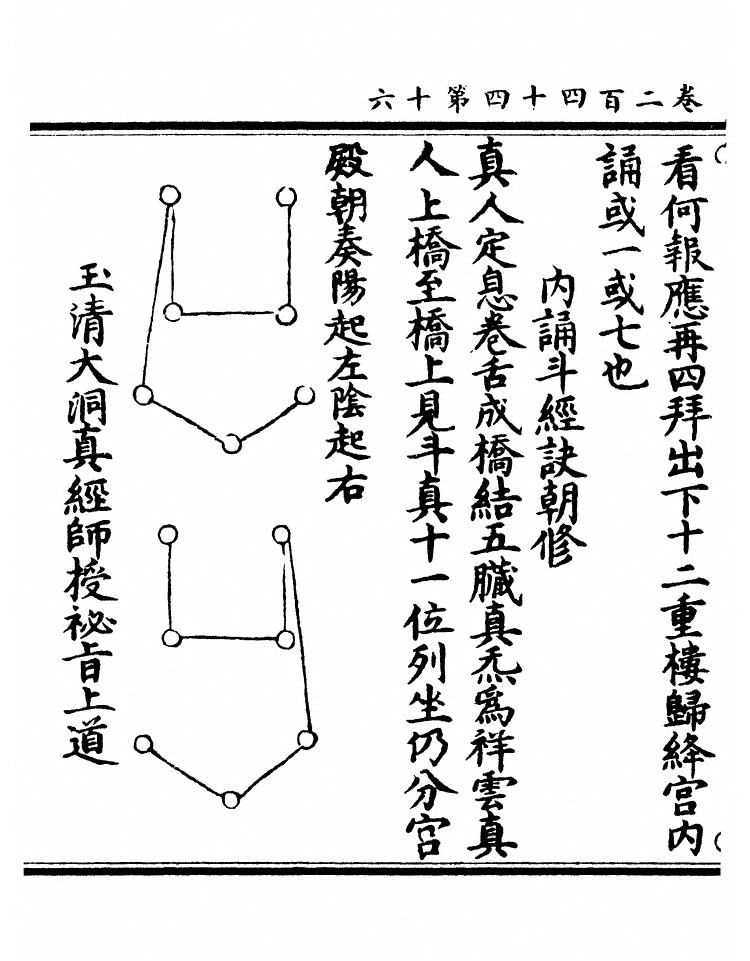 卷二百四十四第十六
看何報應再四拜出下十二重樓歸絳宮内
誦或一或七也
内誦斗經訣朝修
真人定息卷舌成橋結五臟真炁為祥雲真
人上橋至橋上見斗真十一位列坐仍分宮
殿朝奏陽起左陰起右
玉清大洞真經師授祕旨上道